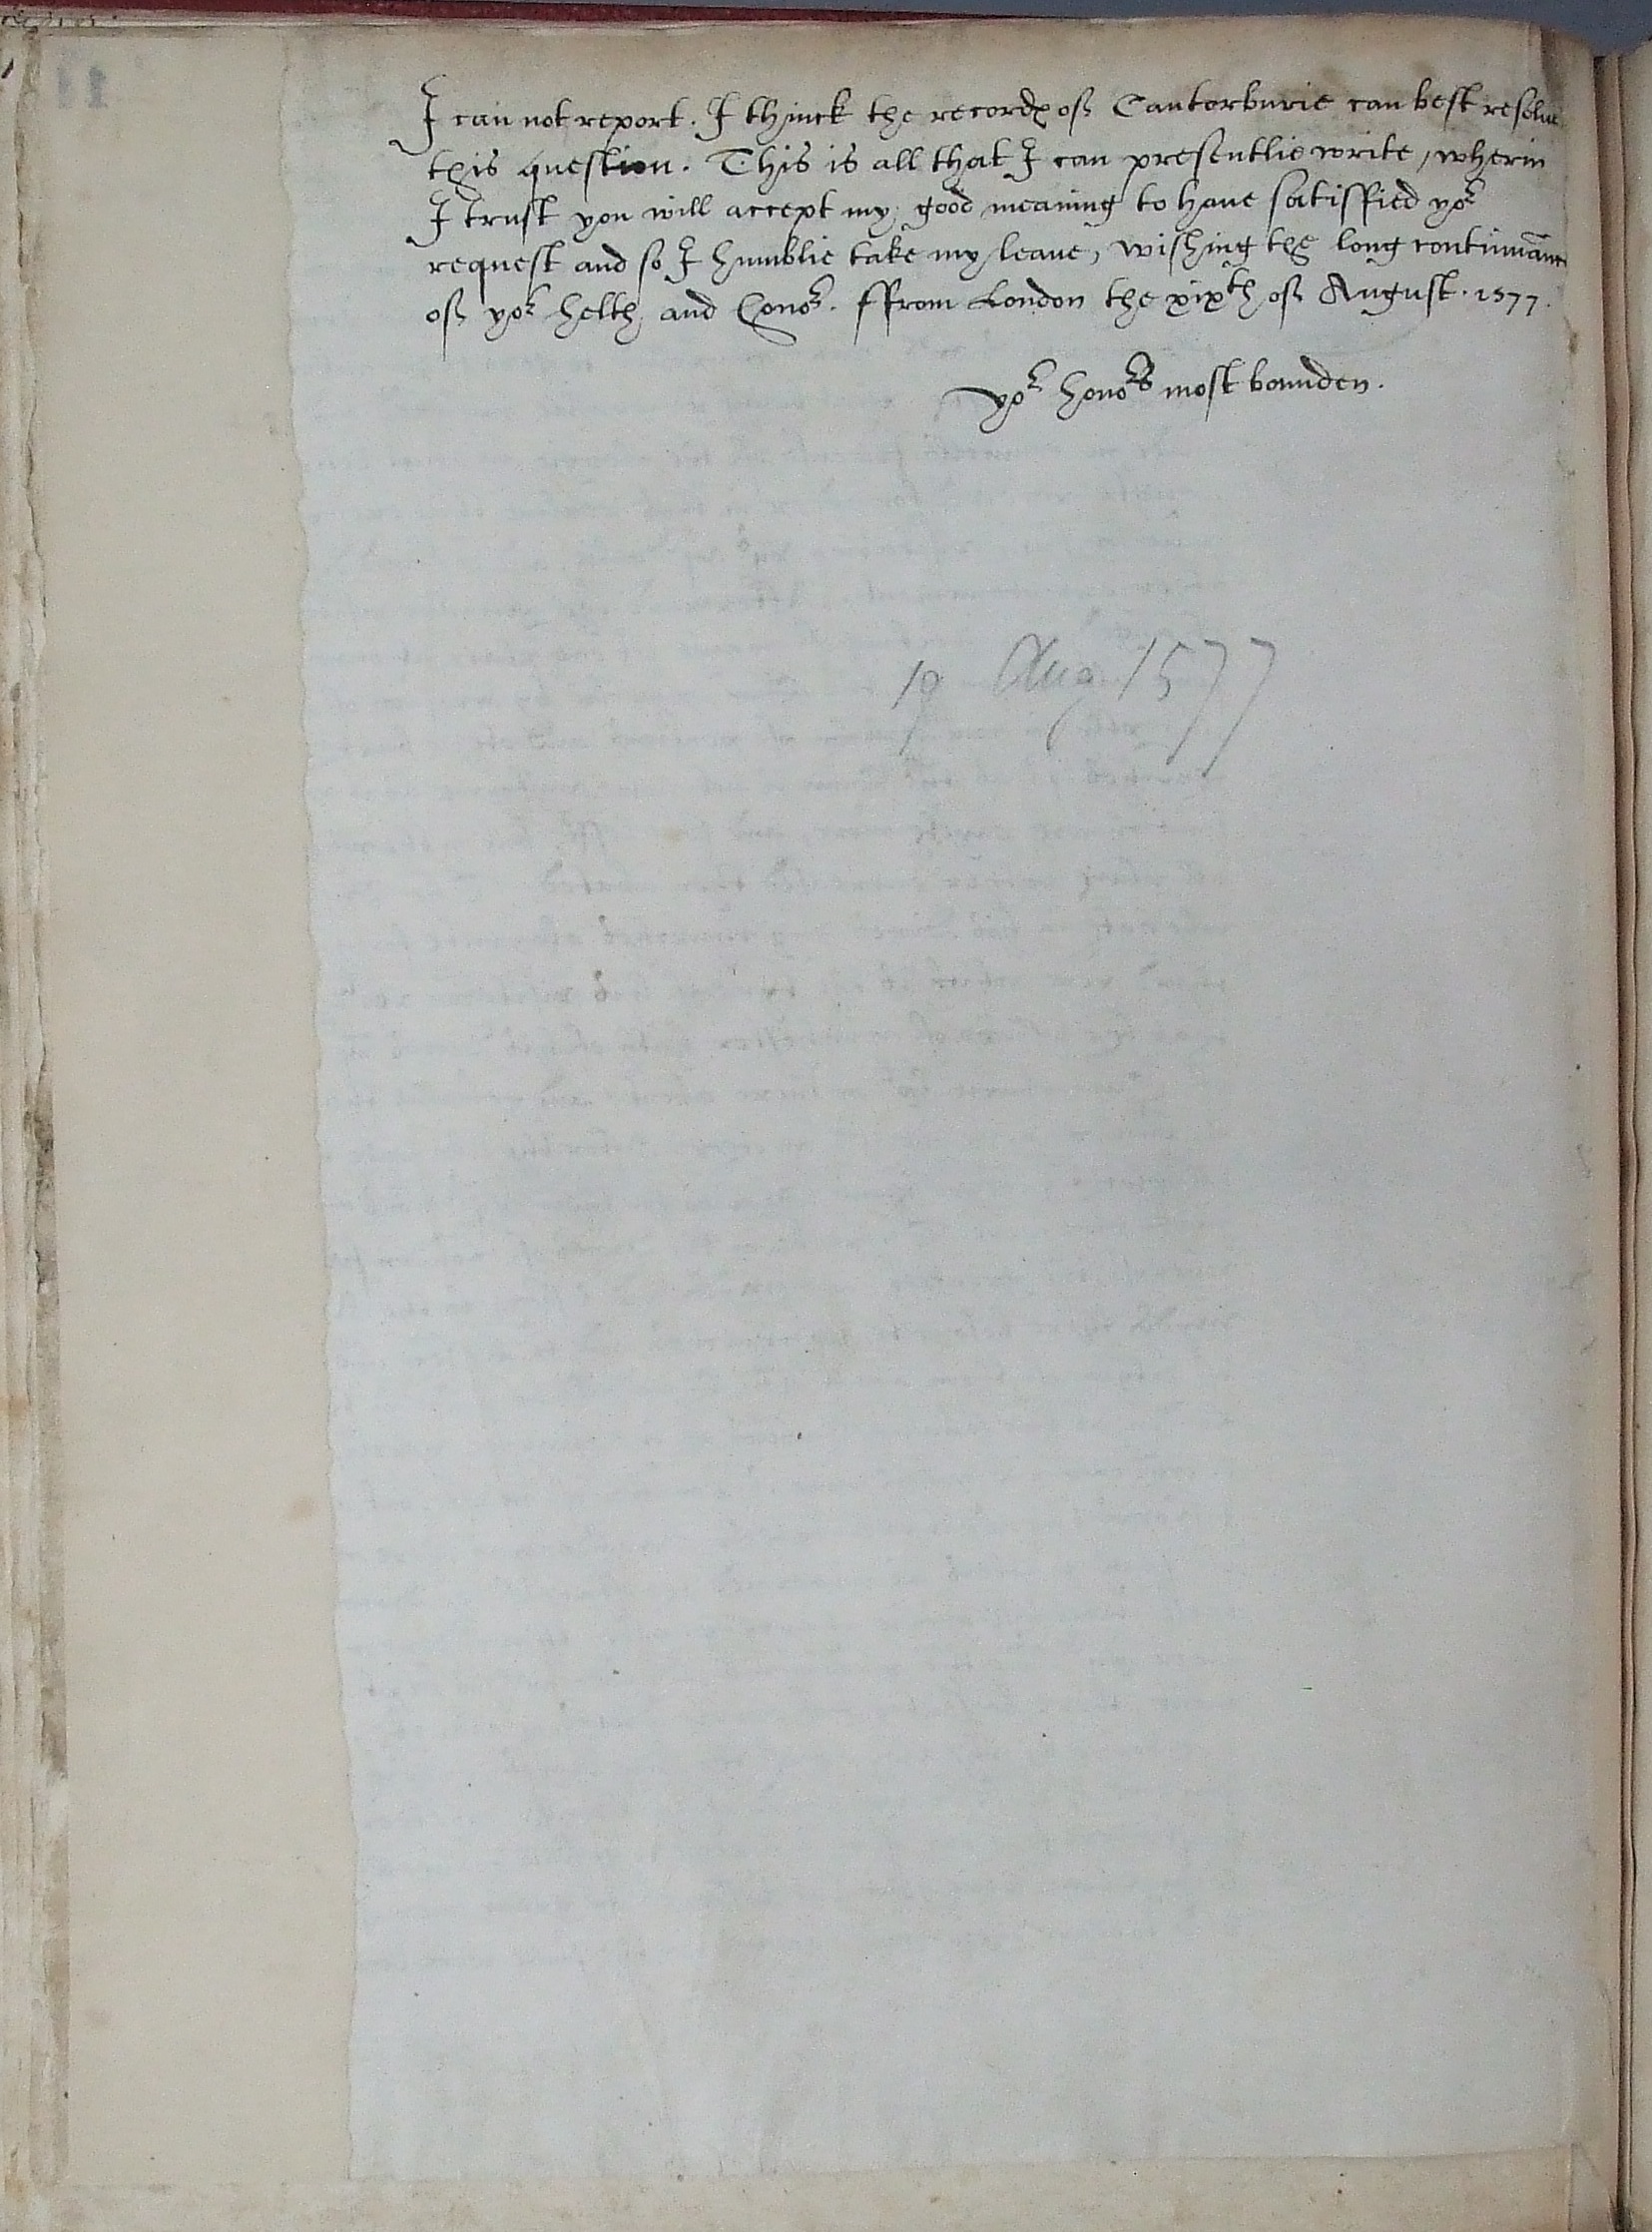 I can not report. I thinck the recordꝭ of Cantorburie can best resolue
this question. This is all that I can presentlie write, wherin
I trust you will accept my good meaning to haue satisffied yoʳ
request and so I humblie take my leaue, wishing the long continuāce
of yoʳ helth and honoʳ. ffrom London the xixᵗʰ of August. 1577.
yoʳ honoʳˢ most bounden.
19 Aug 1577